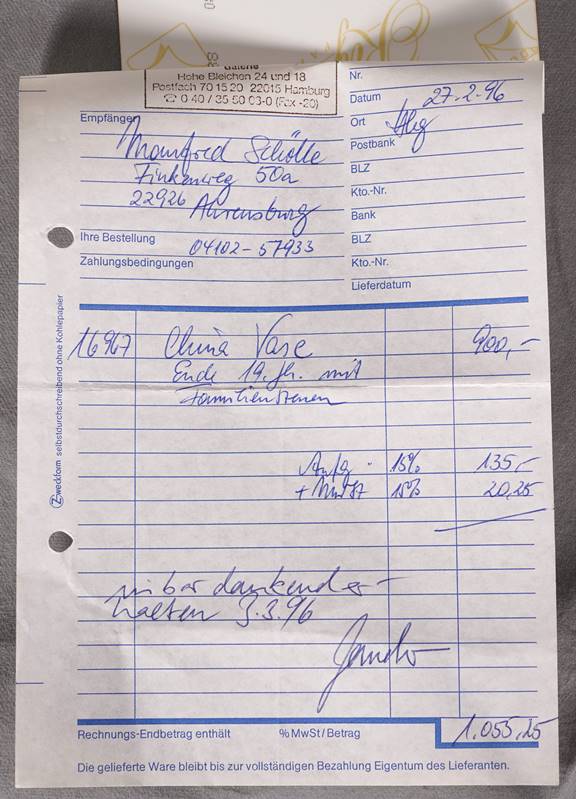 Galerie
Hohe Bleichen 24 und 18
Postfach 70 15 20 22015 Hamburg
☎ 0 40 / 35 50 03-0 (Fax -20)
Nr.
Datum 27.2.96
Empfänger
Ort Hbg
Manfred Schölle
Postbank
Finkenweg 50a
BLZ
22926 Ahrensburg
Kto.-Nr.
Bank
Ihre Bestellung 04102-57933
BLZ
Zahlungsbedingungen
Kto.-Nr.
Lieferdatum
16967 China Vase 900,-
Ende 19. Jh. mit
Familienszenen
Aufg. 15% 135,-
+ MwSt 15% 20,25
in bar dankend er-
halten 3.3.96
Zweckform selbstdurchschreibend ohne Kohlepapier
Rechnungs-Endbetrag enthält % MwSt / Betrag 1.055,25
Die gelieferte Ware bleibt bis zur vollständigen Bezahlung Eigentum des Lieferanten.